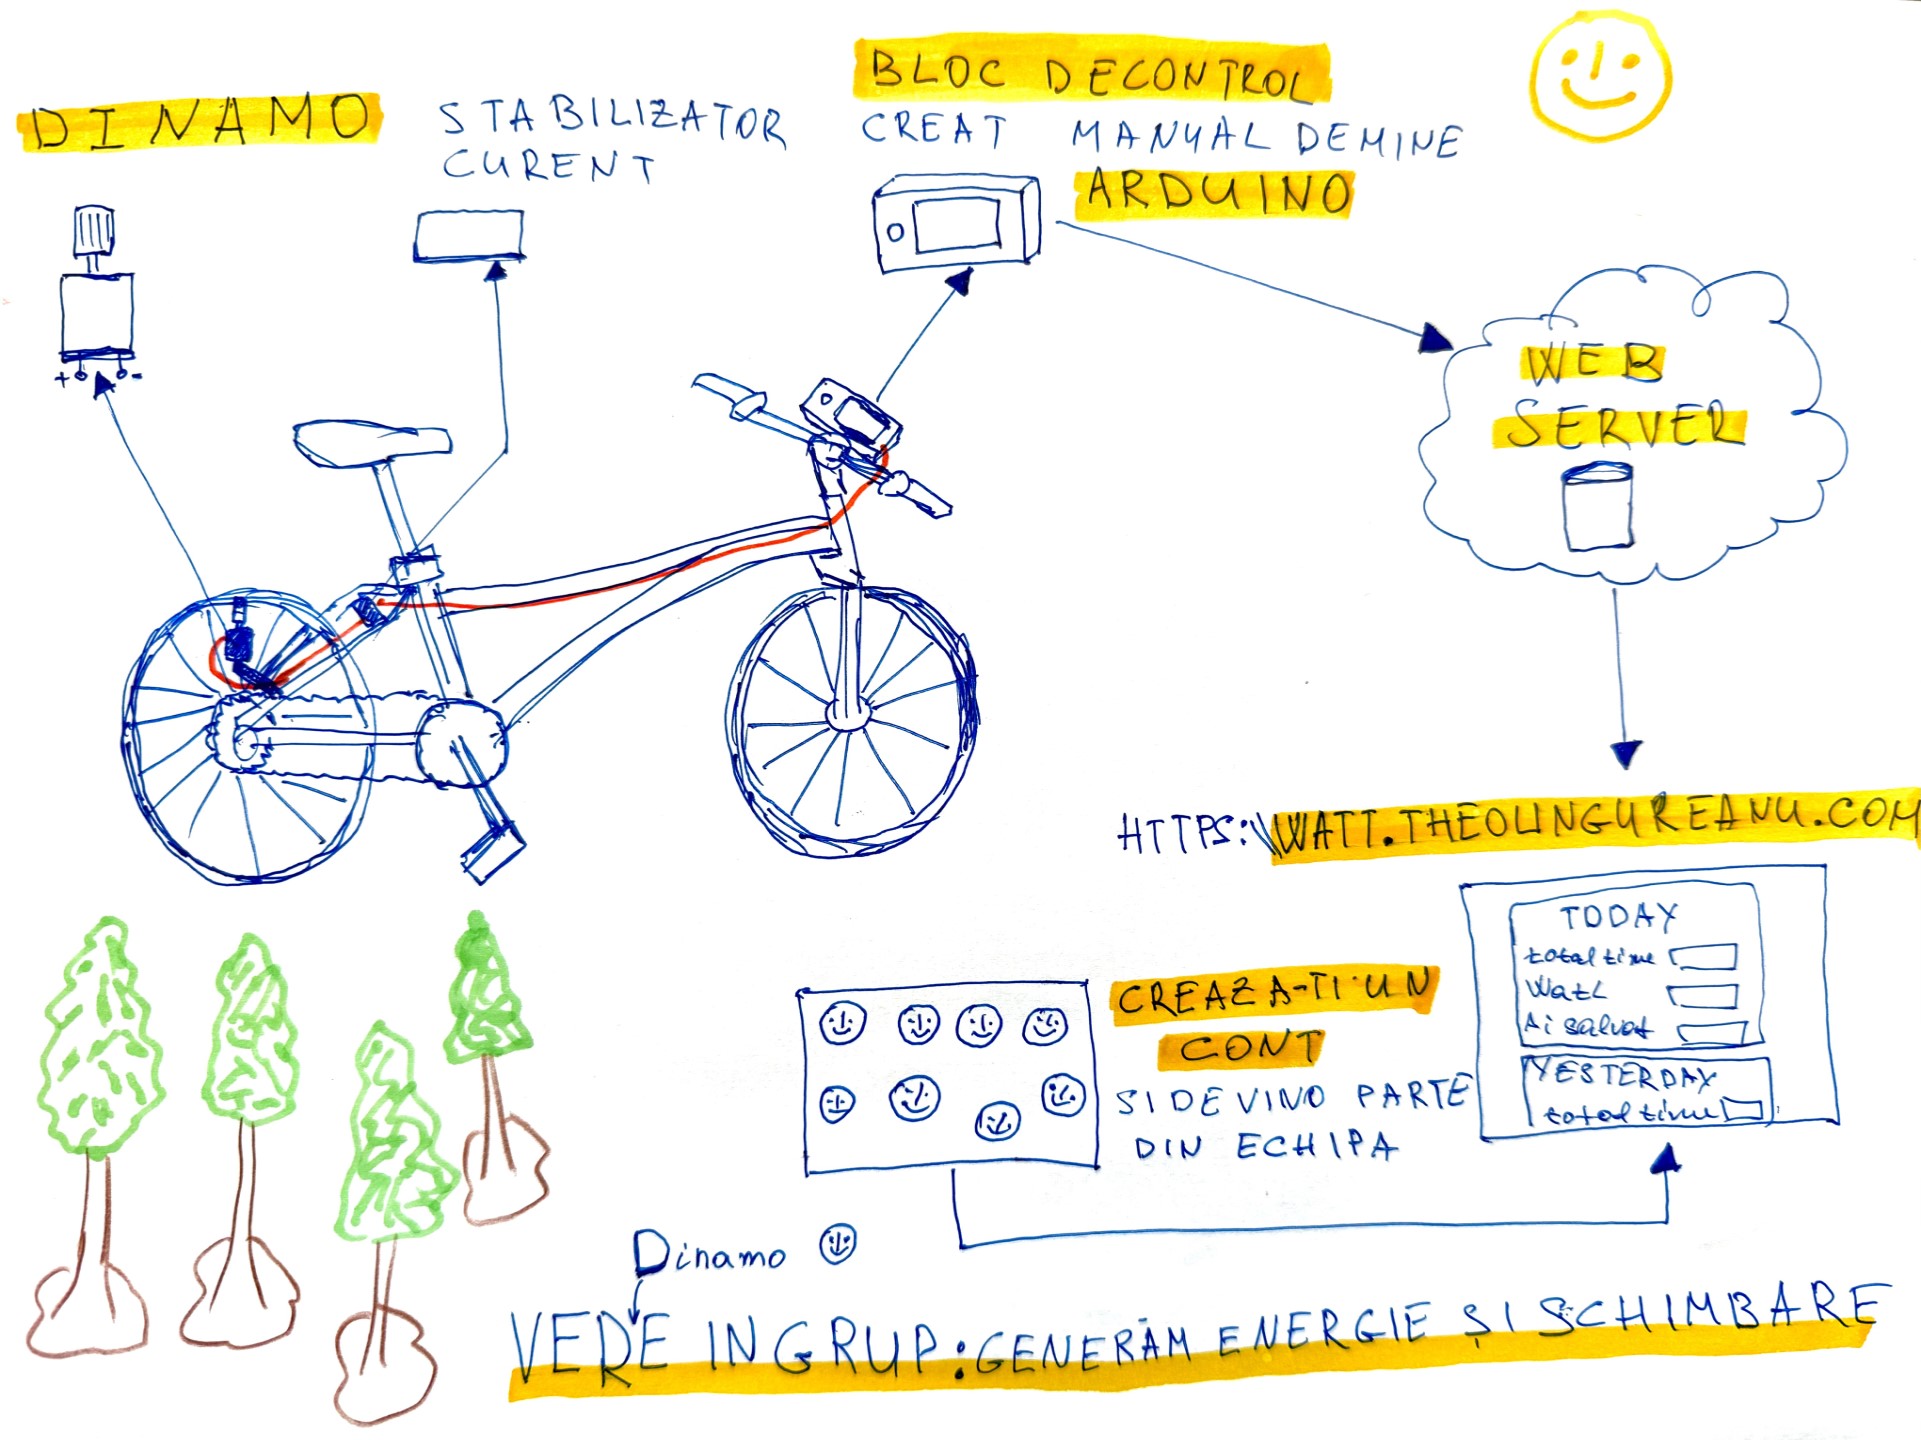 DINAMO
STABILIZATOR
CURENT
BLOC DECONTROL
CREAT MANUAL DEMINE
ARDUINO
+ -
WEB
SERVER
HTTPS:\\WATT.THEOUNGUREANU.COM
TODAY
total time
Watt
Ai salvat
YESTERDAY
total time
CREAZA-TI UN
CONT
SI DEVINO PARTE
DIN ECHIPA
Dinamo
VERDE IN GRUP: GENERĂM ENERGIE ȘI SCHIMBARE